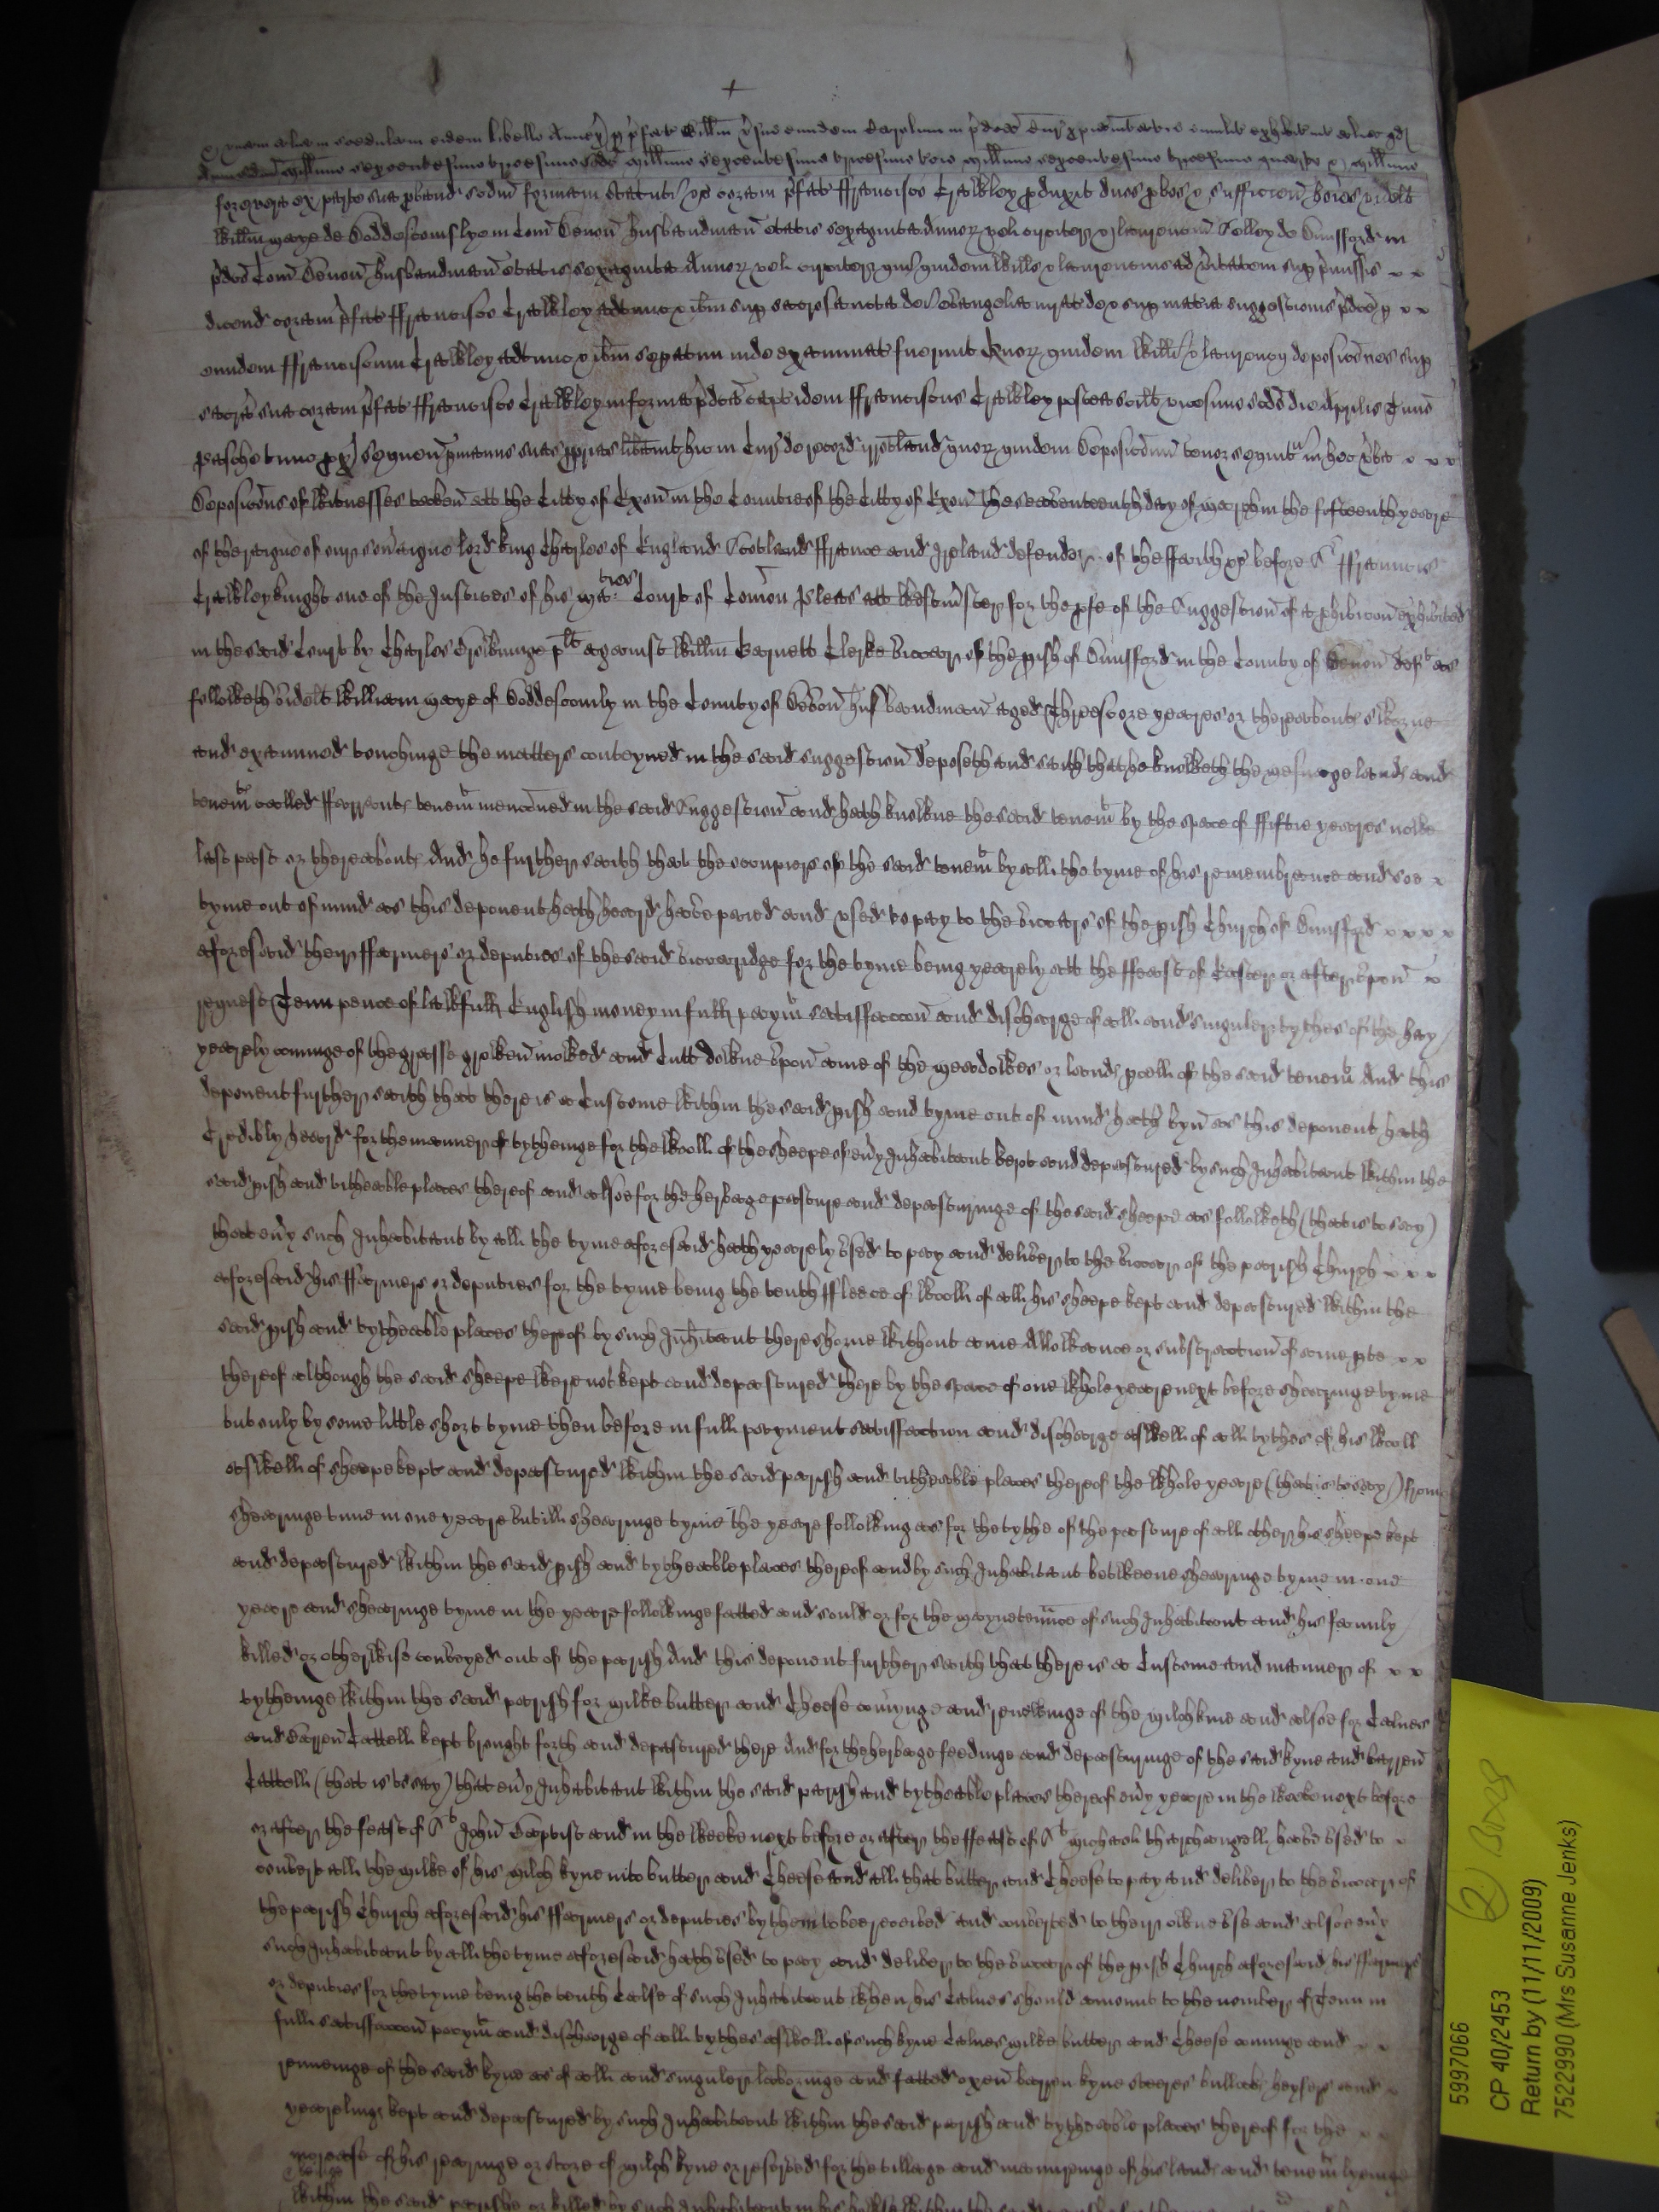 forevert ex parte sua proband scdm formam statuti &c coram prefat Francisco Crawley produxit duos probos & sufficien testes videlt
Willm Maye de Doddescomslye in Com Devon husbandman etatis sexaginta Annor vel circiter & Laurencm Kelley de Dunsford in
pdco Com Devon husbandman etatis sexaginta Annor vel circiter qui quidem Willus & Laurencius ad veritatem sup premissis x x
dicend coram prefat Francisco Crawley adtunc & ibm sup sacrosancta dei Evangelia jurat de & sup materia suggestionis pdce p x x
eundem Franciscum Crawley adtunc & ibm sepatim inde examinat fuerunt Quor quidem Willi & Laurencij deposicones sup
sacra sua coram prefat Francisco Crawley in forma pdca capt idem Franciscus Crawley postea scilt vicesimo scdo die Aprilis Termo
Pasche tunc px sequen p manus suas pprias libavit hic in Cur de recordo irrotland quor quidem Deposiconum tenor sequitur in hec verba x x x
Deposicons of Witnesses taken att the Citty of Exon in the Countie of the Citty of Exon the seaventeenth day of March in the fifteenth yeare
of the raigne of our soveraigne lord king Charles of England Scotland ffrance and Ireland defender of the ffaith &c before Sr ffrancis
Crawley knight one of the Justices of his Maties Court of Comon Pleas att Westmster for the pfe of the Suggestion of a phibicon exhibited
in the said Court by Charles plt against Willm Garnett Clerke Viccar of the pish of Dunsford in the County of Devon deft as
followeth videlt William Maye of Doddescomly in the County of Devon husbandman aged Threescore yeares or thereabouts sworne
and examined touchinge the matters conteyned in the said suggestion deposeth and saith that he knoweth the mesuage lands and
tenemt called ffarrants tenemt menconed in the said Suggestion and hath knowne the said tenemt by the space of ffiftie yeares nowe
last past or thereabouts And he further saith that the occupiers of the said tenemt by all the tyme of his remembrance and soe x
tyme out of mind as this deponent hath heard have paied and vsed to pay to the Viccars of the pish Church of Dunsford x x x x
aforesaid their ffarmers or deputies of the said viccaridge for the tyme being yearely att the ffeast of Easter or after vpon x
request Tenn pence of lawfull English money in full paymt satisfaccon and discharge of all and singuler tythes of the hay
yearely cominge of the grasse growen mowed and Cutt downe vpon anie of the meadowes or lands pcell of the said tenemt And this
deponent further saith that there is a Custome within the said pish and tyme out of mind hath byn as this deponent hath
Credibly heard for the manner of tytheinge for the wooll of the sheepe of evy Inhabitant kept and depastured by such Inhabitant within the
said pish and titheable places thereof and alsoe for the herbage pasture and depasturinge of the said sheepe as followeth (that is to say)
that evy such Inhabitant by all the tyme aforesaid hath yearely vsed to pay and deliver to the Viccar of the parish Church x x x
aforesaid his ffarmers or deputies for the tyme being the tenth ffleece of wooll of all his sheepe kept and depastured within the
said pish and tytheable places thereof by such Inhitant there shorne without anie Allowance or substraction of anie pte x x
thereof although the said sheepe were not kept and depastured there by the space of one whole yeare next before shearinge tyme
but only by some little short tyme then before in full payment satisfaction and discharge aswell of all tythes of his wooll
aswell of sheepe kept and depastured within the said parish and titheable places thereof the whole yeare (that is to say) from
shearinge time in one yeare vntill shearinge tyme the yeare following as for the tythe of the pasture of all other his sheepe kept
and depastured within the said pish and tytheable places thereof and by such Inhabitant betweene shearinge tyme in one
yeare and shearinge tyme in the yeare followinge fatted and sould or for the maynetennce of such Inhabitant and his family
killed or otherwise conveyed out of the parish And this deponent further saith that there is a Custome and manner of x x
tytheinge within the said parish for milke butter and Cheese comynge and renewinge of the milch kine and alsoe for Calves
and Barren Cattell kept brought forth and depastured there And for the herbage feedinge and depasturinge of the said kyne and barren
Cattell (that is to say) that evy Inhabitant within the said parish and tytheable places thereof evy yeare in the weeke next before
or after the feast of St John Baptist and in the weeke next before or after the ffeast of St Michaell tharchangell have vsed to x
convert all the milke of his milch kyne into butter and Cheese and all that butter and Cheese to pay and deliver to the Viccar of
the parish Church aforesaid his ffarmers or deputies by them to bee received and converted to their owne vse and alsoe evy
such Inhabitant by all the tyme aforesaid hath vsed to pay and deliver to the Viccar of the pish Church aforesaid his ffarmers
or deputies for the tyme being the tenth Calfe of such Inhabitant when his Calves should amount to the number of Tenn in
full satisfaccon paymt and discharge of all tythes aswell of such kyne Calves milke butter and Cheese cominge and x x
renueinge of the said kyne as of all and singuler laboringe and fatted oxen barren kyne steeres bullocks heyfers and x
yearelings kept and depastured by such Inhabitant within the said parish and tytheable places thereof for the x x
increase of his rearinge or store of milch kyne or reserved for the tillage and manuringe of his lands and tenemt lyeinge
within the said parishe or killed by such Inhabitant in his
5997066
CP 40/2453
Return by (11/11/2009)
7522990 (Mrs Susanne Jenks)